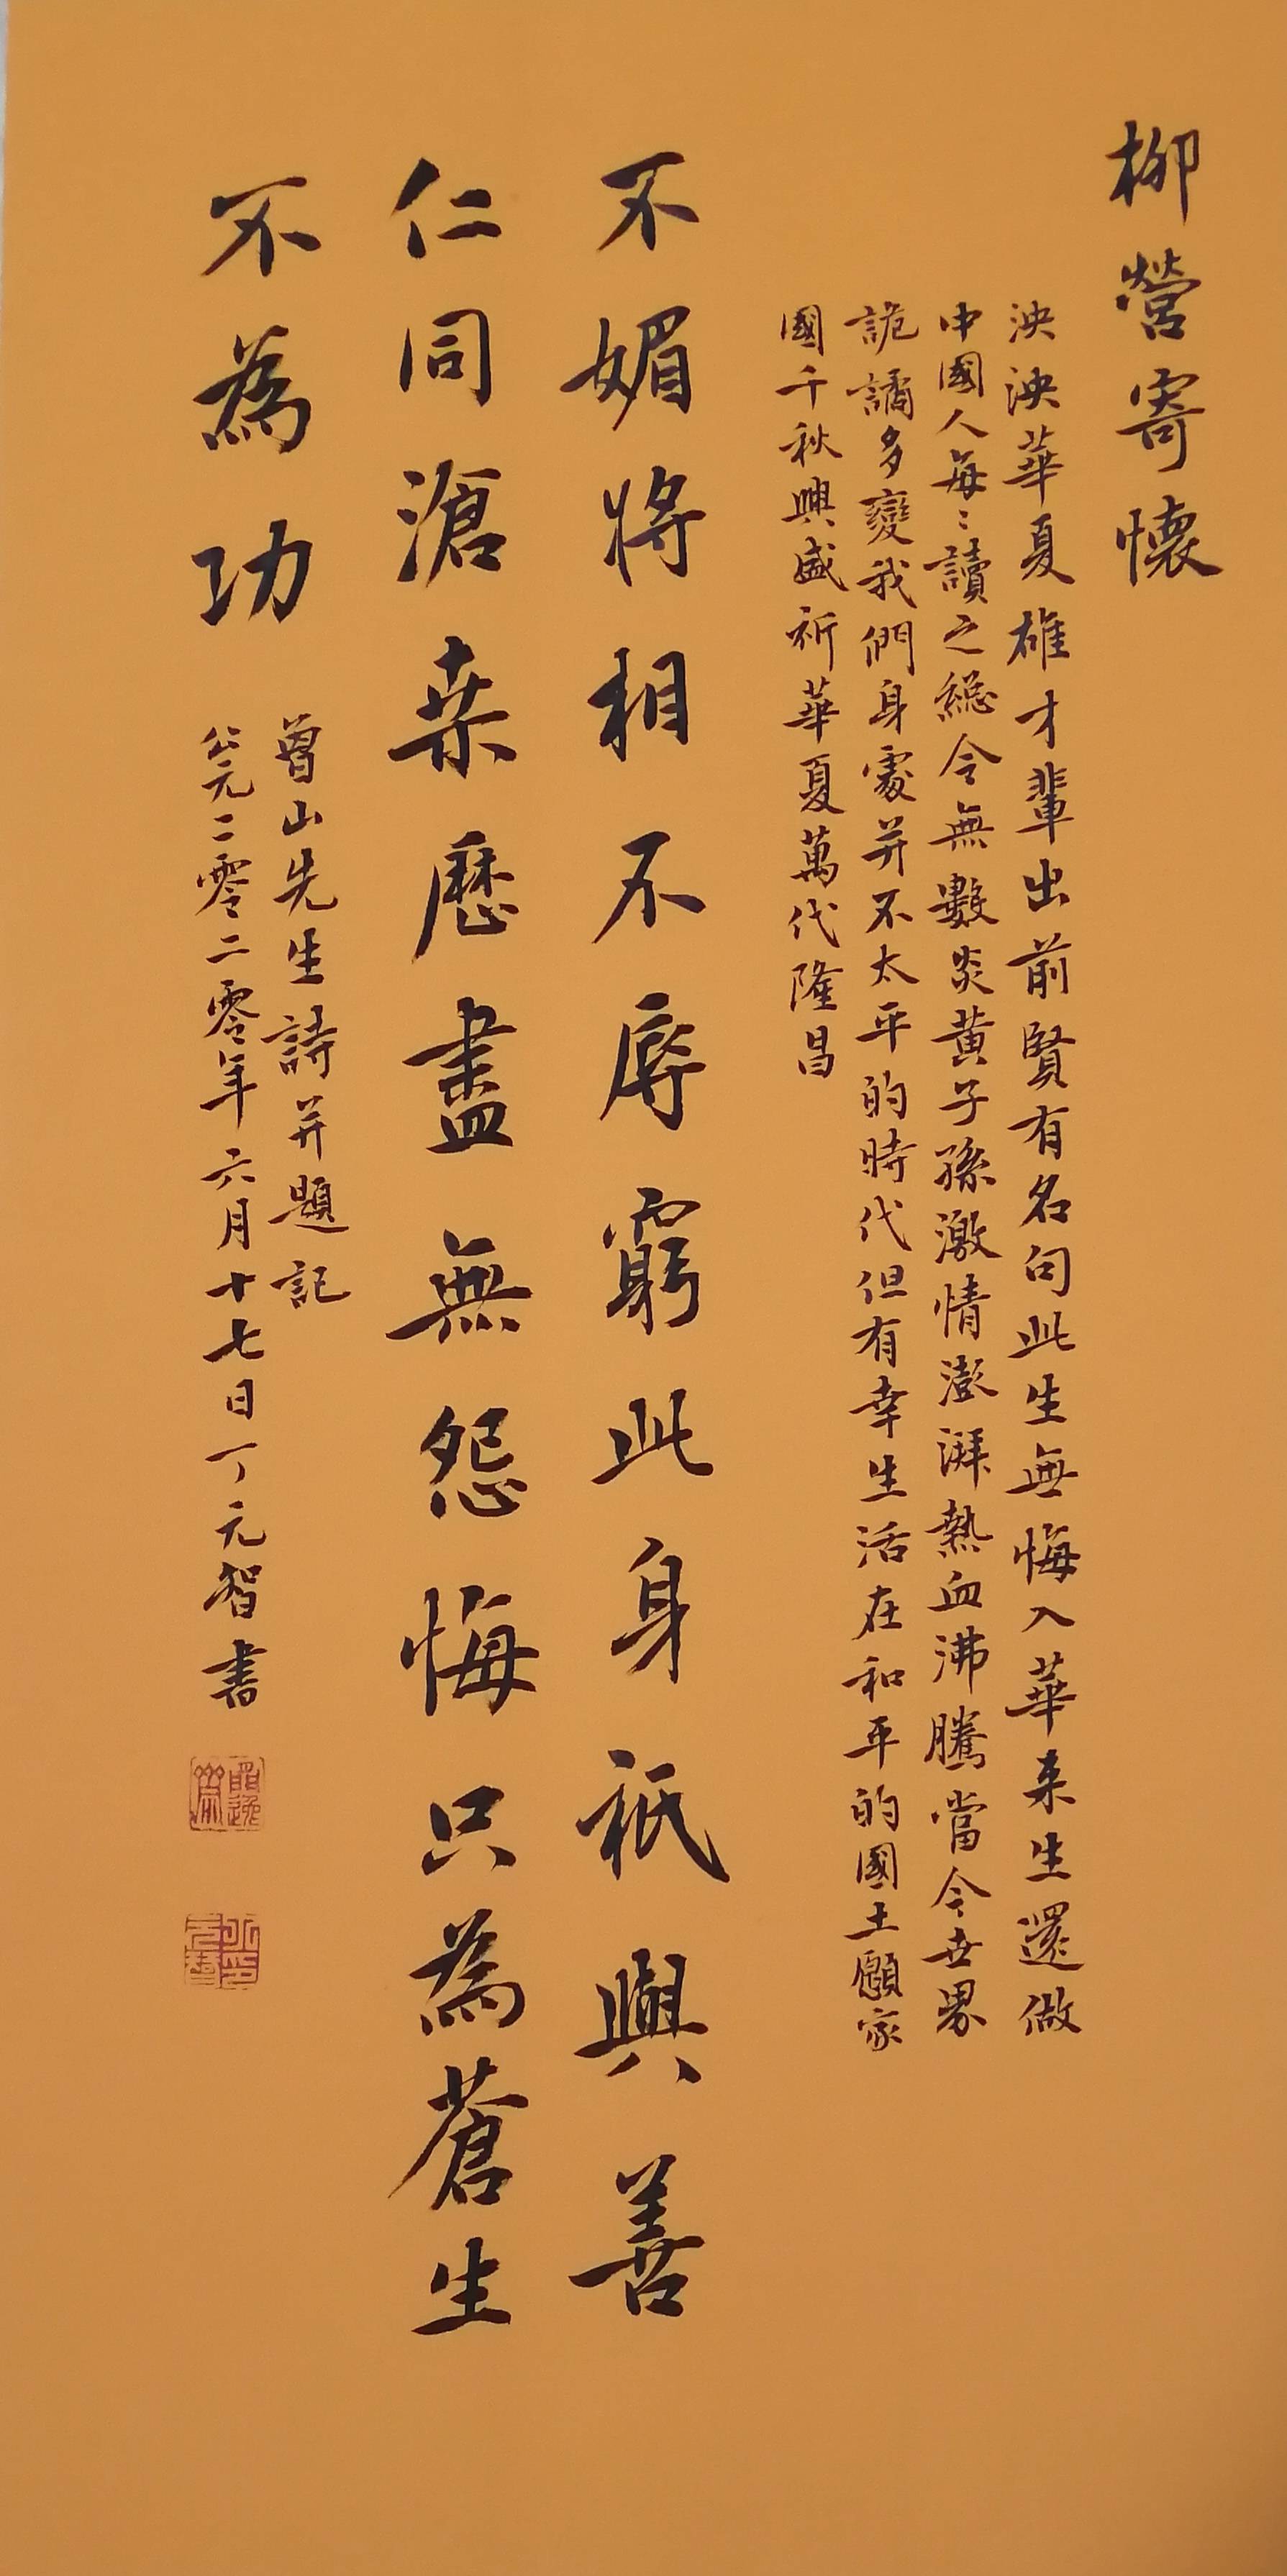 柳營寄懷
泱泱華夏雄才輩出前賢有名句此生無悔入華來生還做
中國人每〻讀之總令無數炎黃子孫激情澎湃熱血沸騰當今世界
詭譎多變我們身處并不太平的時代但有幸生活在和平的國土願家
國千秋興盛祈華夏萬代隆昌
不媚將相不辱窮此身祇與善
仁同滄桒歷盡無怨悔只為蒼生
不為功
曾山先生詩并題記
公元二零二零年六月十七日丁元智書